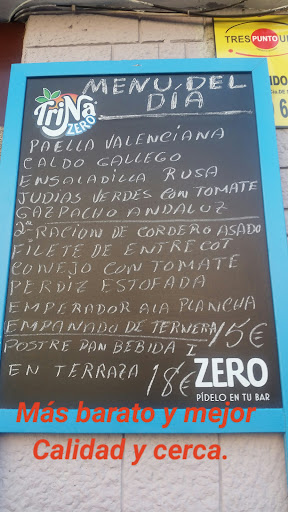 TriNa
ZERO
MENU DEL
DÍA
PAELLA VALENCIANA
CALDO GALLEGO
ENSALADILLA RUSA
JUDIAS VERDES CON TOMATE
GAZPACHO ANDALUZ
2º RACION DE CORDERO ASADO
FILETE DE ENTRECOT
CONEJO CON TOMATE
PERDIZ ESTOFADA
EMPERADOR A LA PLANCHA
EMPANADO DE TERNERA 15€
POSTRE PAN BEBIDA I
EN TERRAZA 18€
ZERO
PÍDELO EN TU BAR
TRESPUNTOU
Más barato y mejor
Calidad y cerca.